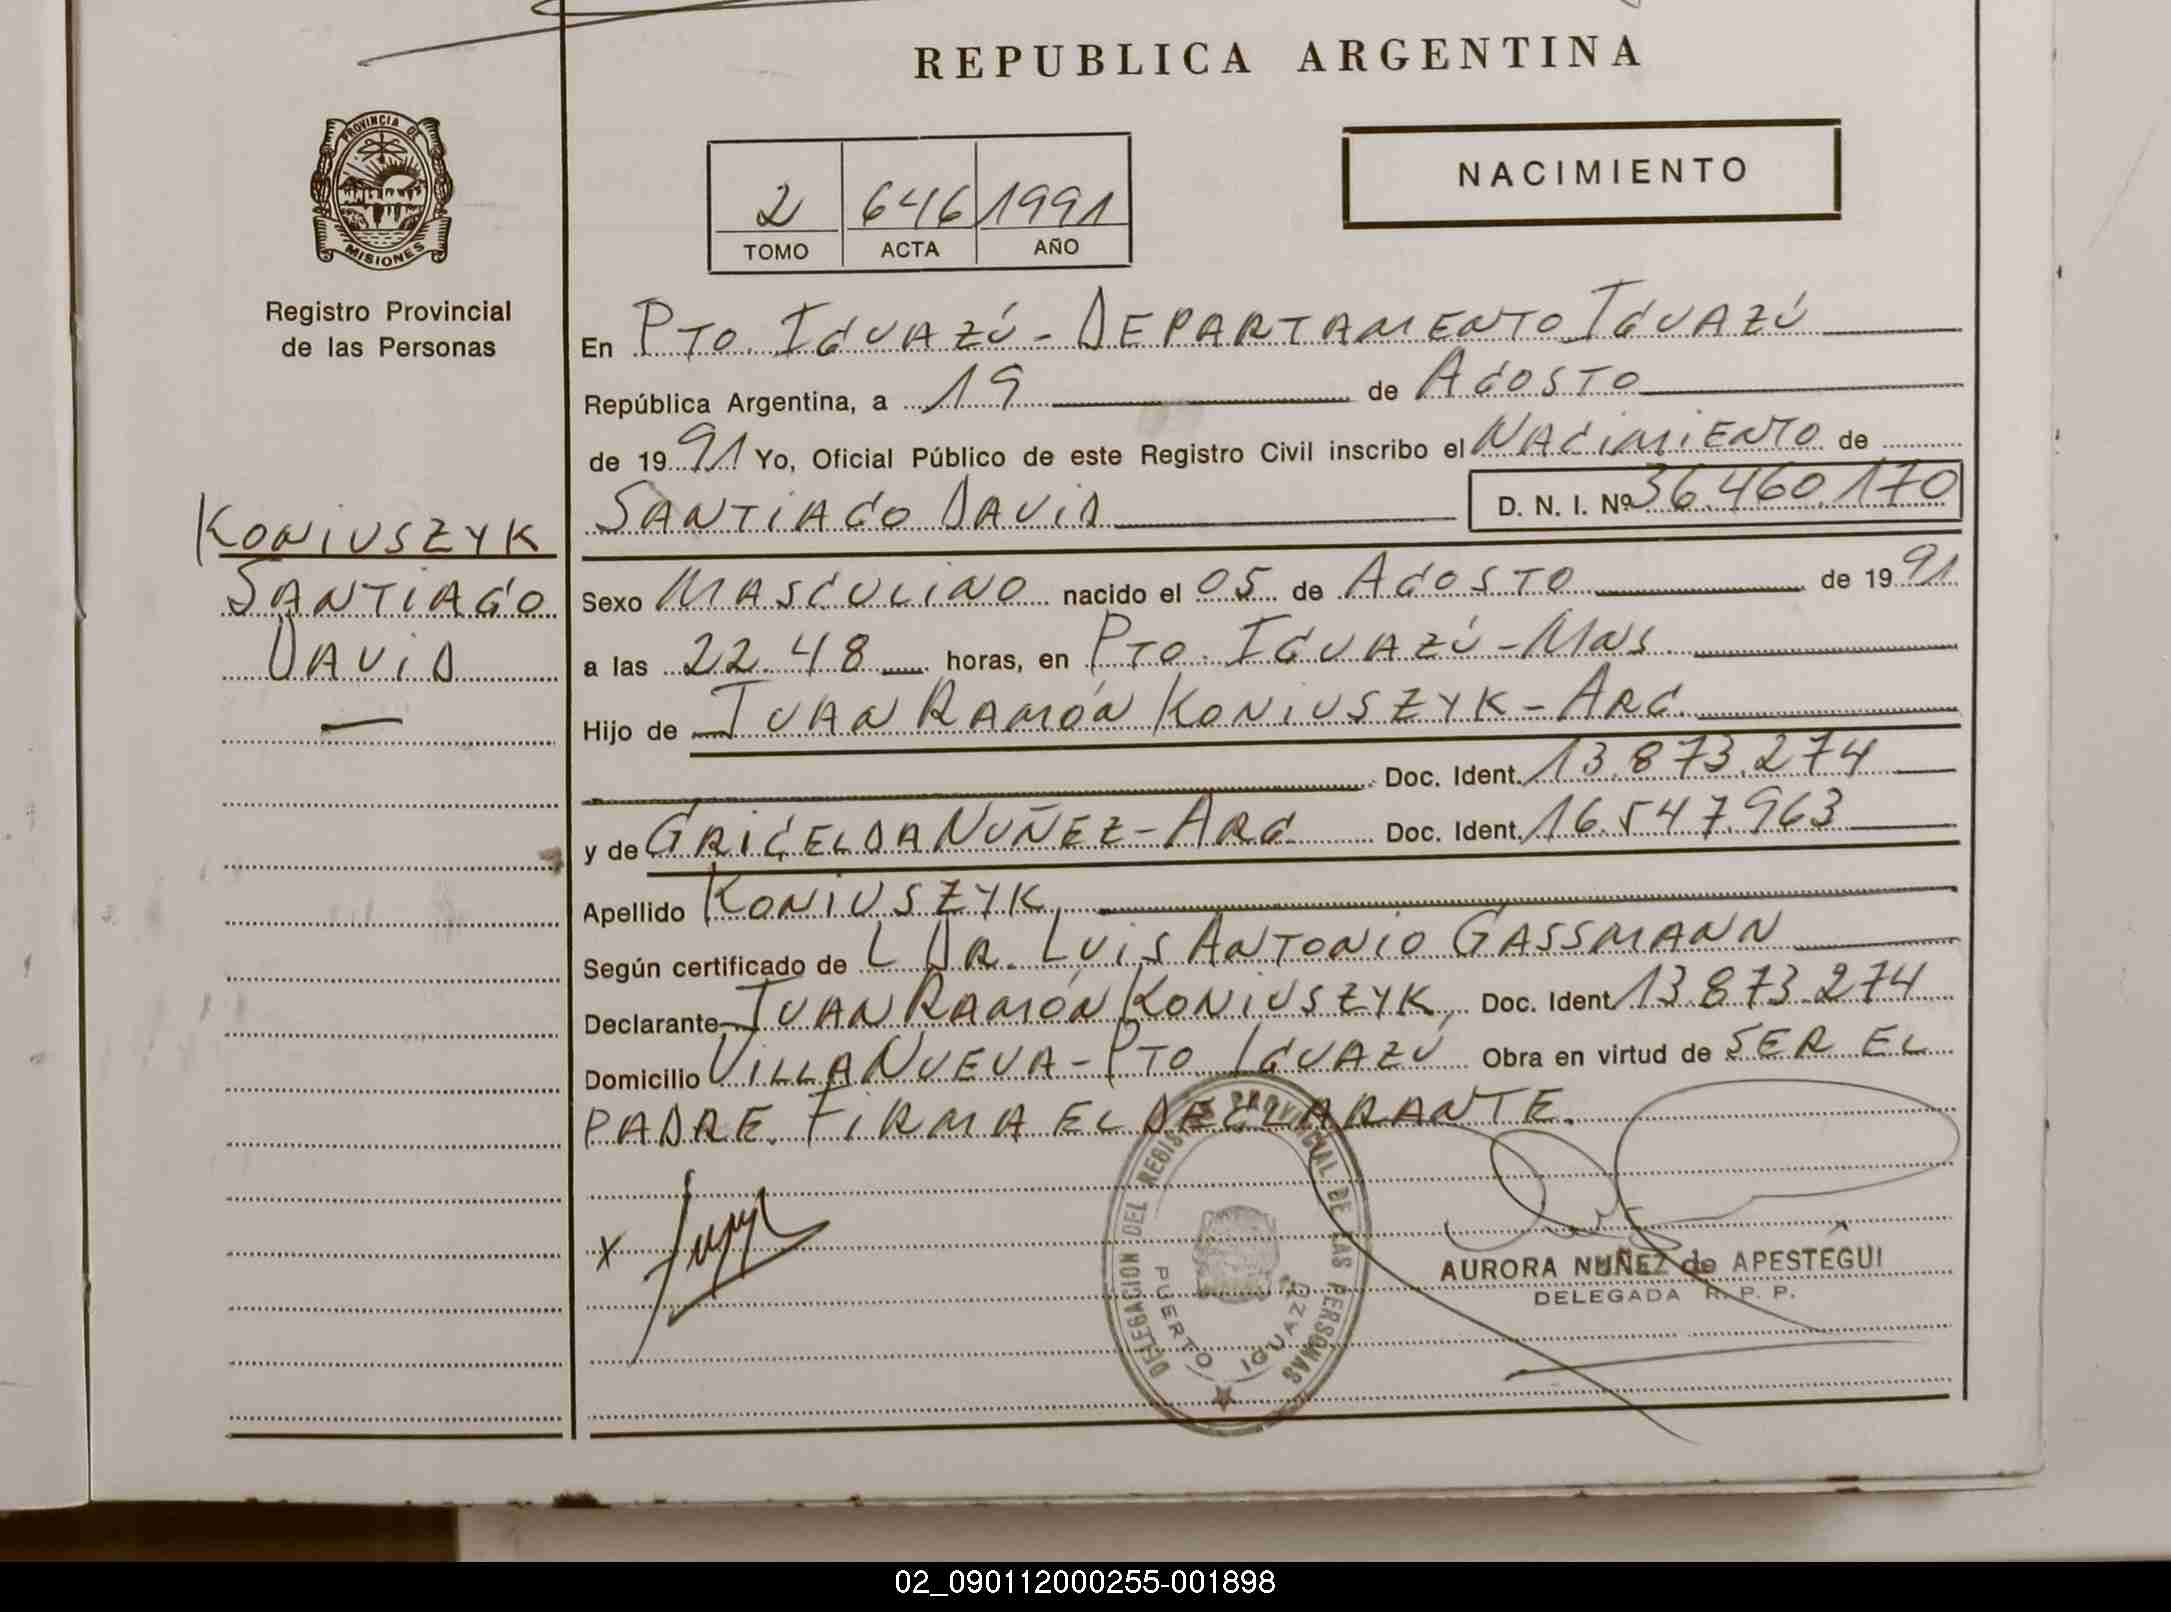 REPUBLICA ARGENTINA
PROVINCIA DE
MISIONES
Registro Provincial
de las Personas
NACIMIENTO
2 646 1991
TOMO ACTA AÑO
En PTO. IGUAZÚ - DEPARTAMENTO IGUAZÚ
República Argentina, a 19 de AGOSTO
de 1991 Yo, Oficial Público de este Registro Civil inscribo el NACIMIENTO de
SANTIAGO DAVID D. N. I. Nº 36.460.170
KONIUSZYK
SANTIAGO
DAVID
Sexo MASCULINO nacido el 05 de AGOSTO de 1991
a las 22.48 horas, en PTO. IGUAZÚ - MNS
Hijo de JUAN RAMÓN KONIUSZYK - ARG.
Doc. Ident. 13.873.274
y de GRICELDA NUÑEZ - ARG. Doc. Ident. 16.547.963
Apellido KONIUSZYK
Según certificado de L DR. LUIS ANTONIO GASSMANN
Declarante JUAN RAMÓN KONIUSZYK, Doc. Ident 13.873.274
Domicilio VILLA NUEVA - PTO IGUAZÚ Obra en virtud de SER EL
PADRE. FIRMA EL DECLARANTE.
X
DELEGACION DEL REGISTRO PROVINCIAL DE LAS PERSONAS
PUERTO IGUAZU
AURORA NUÑEZ de APESTEGUI
DELEGADA R. P. P.
02_090112000255-001898